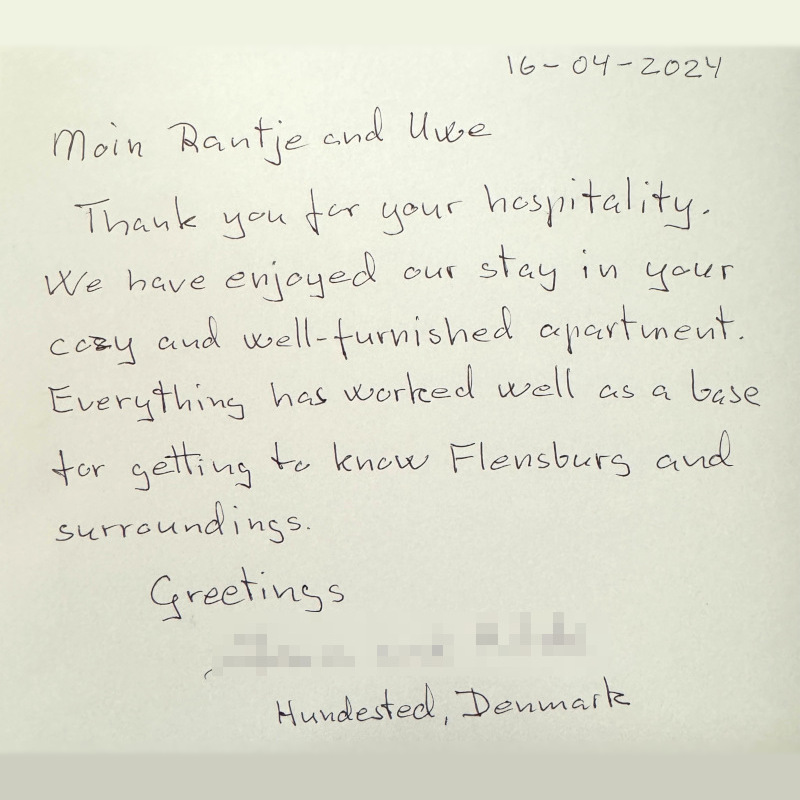 16-04-2024
Moin Rantje and Uwe
Thank you for your hospitality.
We have enjoyed our stay in your
cozy and well-furnished apartment.
Everything has worked well as a base
for getting to know Flensburg and
surroundings.
Greetings
Hundested, Denmark